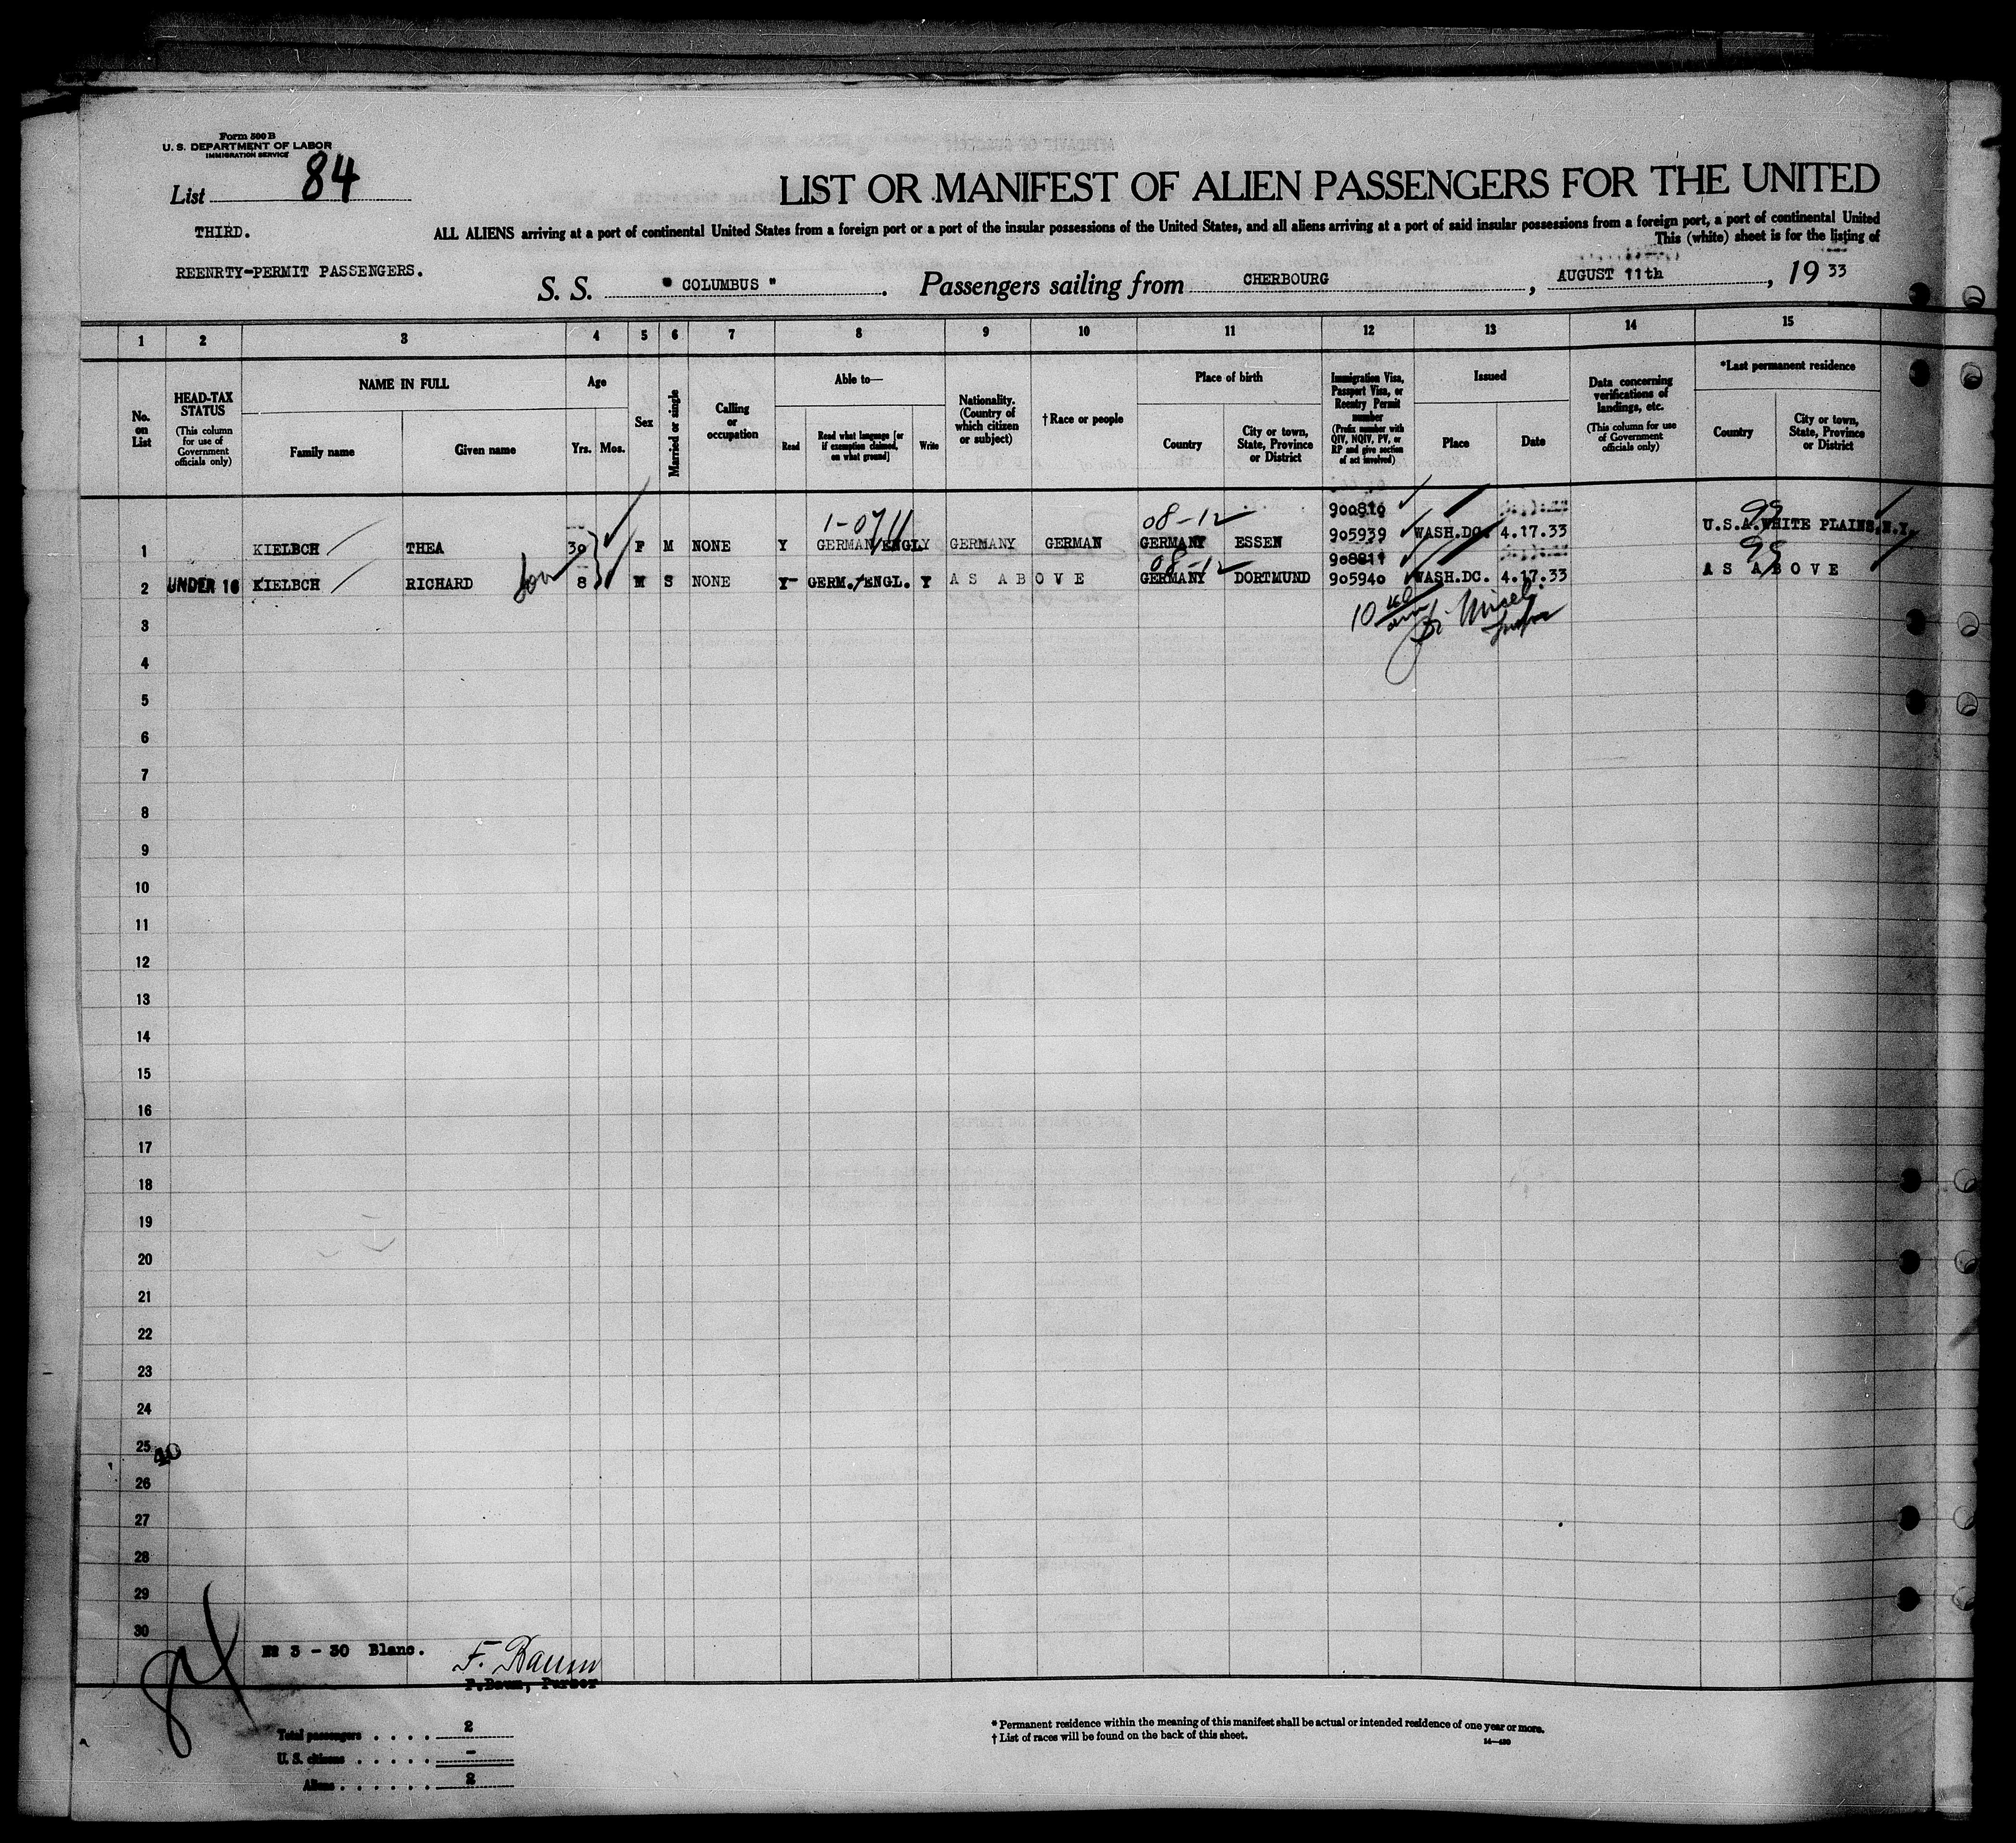 Form 500 B
U. S. DEPARTMENT OF LABOR
IMMIGRATION SERVICE
List 84
LIST OR MANIFEST OF ALIEN PASSENGERS FOR THE UNITED
THIRD.
ALL ALIENS arriving at a port of continental United States from a foreign port or a port of the insular possessions of the United States, and all aliens arriving at a port of said insular possessions from a foreign port, a port of continental United
This (white) sheet is for the listing of
REENRTY-PERMIT PASSENGERS.
S. S. " COLUMBUS " . Passengers sailing from CHERBOURG , AUGUST 11th , 19 33
1 2 3 4 5 6 7 8 9 10 11 12 13 14 15
No. on List
HEAD-TAX STATUS (This column for use of Government officials only)
NAME IN FULL
Family name
Given name
Age
Yrs. Mos.
Sex
Married or single
Calling or occupation
Able to—
Read
Read what language [or if exemption claimed, on what ground]
Write
Nationality. (Country of which citizen or subject)
† Race or people
Place of birth
Country
City or town, State, Province or District
Immigration Visa, Passport Visa, or Reentry Permit number (Prefix number with QIV, NQIV, PV, or RP and give section of act involved)
Issued
Place
Date
Data concerning verifications of landings, etc. (This column for use of Government officials only)
*Last permanent residence
Country
City or town, State, Province or District
1-0711 08-12 900816 99
1 KIELBCH THEA 30 F M NONE Y GERMAN/ENGL Y GERMANY GERMAN GERMANY ESSEN 905939 WASH.DC. 4.17.33 U.S.A. WHITE PLAINS,N.Y.
08-12 99
2 UNDER 16 KIELBCH RICHARD son 8 M S NONE Y GERM./ENGL. Y AS ABOVE GERMANY DORTMUND 905940 WASH.DC. 4.17.33 AS ABOVE
3
4
5
6
7
8
9
10
11
12
13
14
15
16
17
18
19
20
21
22
23
24
25
40
26
27
28
29
30
84
№ 3 - 30 Blanc. F. Baum
F.Baum, Purser
Total passengers . . . . 2
U. S. citizens . . . . . -
Aliens . . . . . . 2
* Permanent residence within the meaning of this manifest shall be actual or intended residence of one year or more.
† List of races will be found on the back of this sheet.
14—430